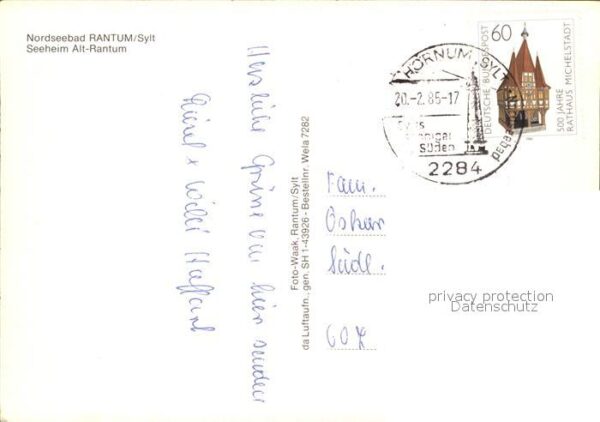 Nordseebad RANTUM/Sylt
Seeheim Alt-Rantum
Herzliche Grüße von hier senden
Willi
Foto-Waak, Rantum/Sylt
da Luftaufn., gen. SH 1-43926 - Bestellnr. Wela 7282
HÖRNUM, SYLT
20.-2.85-17
Sylts
sonniger
Süden
2284
60
DEUTSCHE BUNDESPOST
500 JAHRE
RATHAUS MICHELSTADT
Fam.
Oskar
Seidl.
privacy protection
Datenschutz